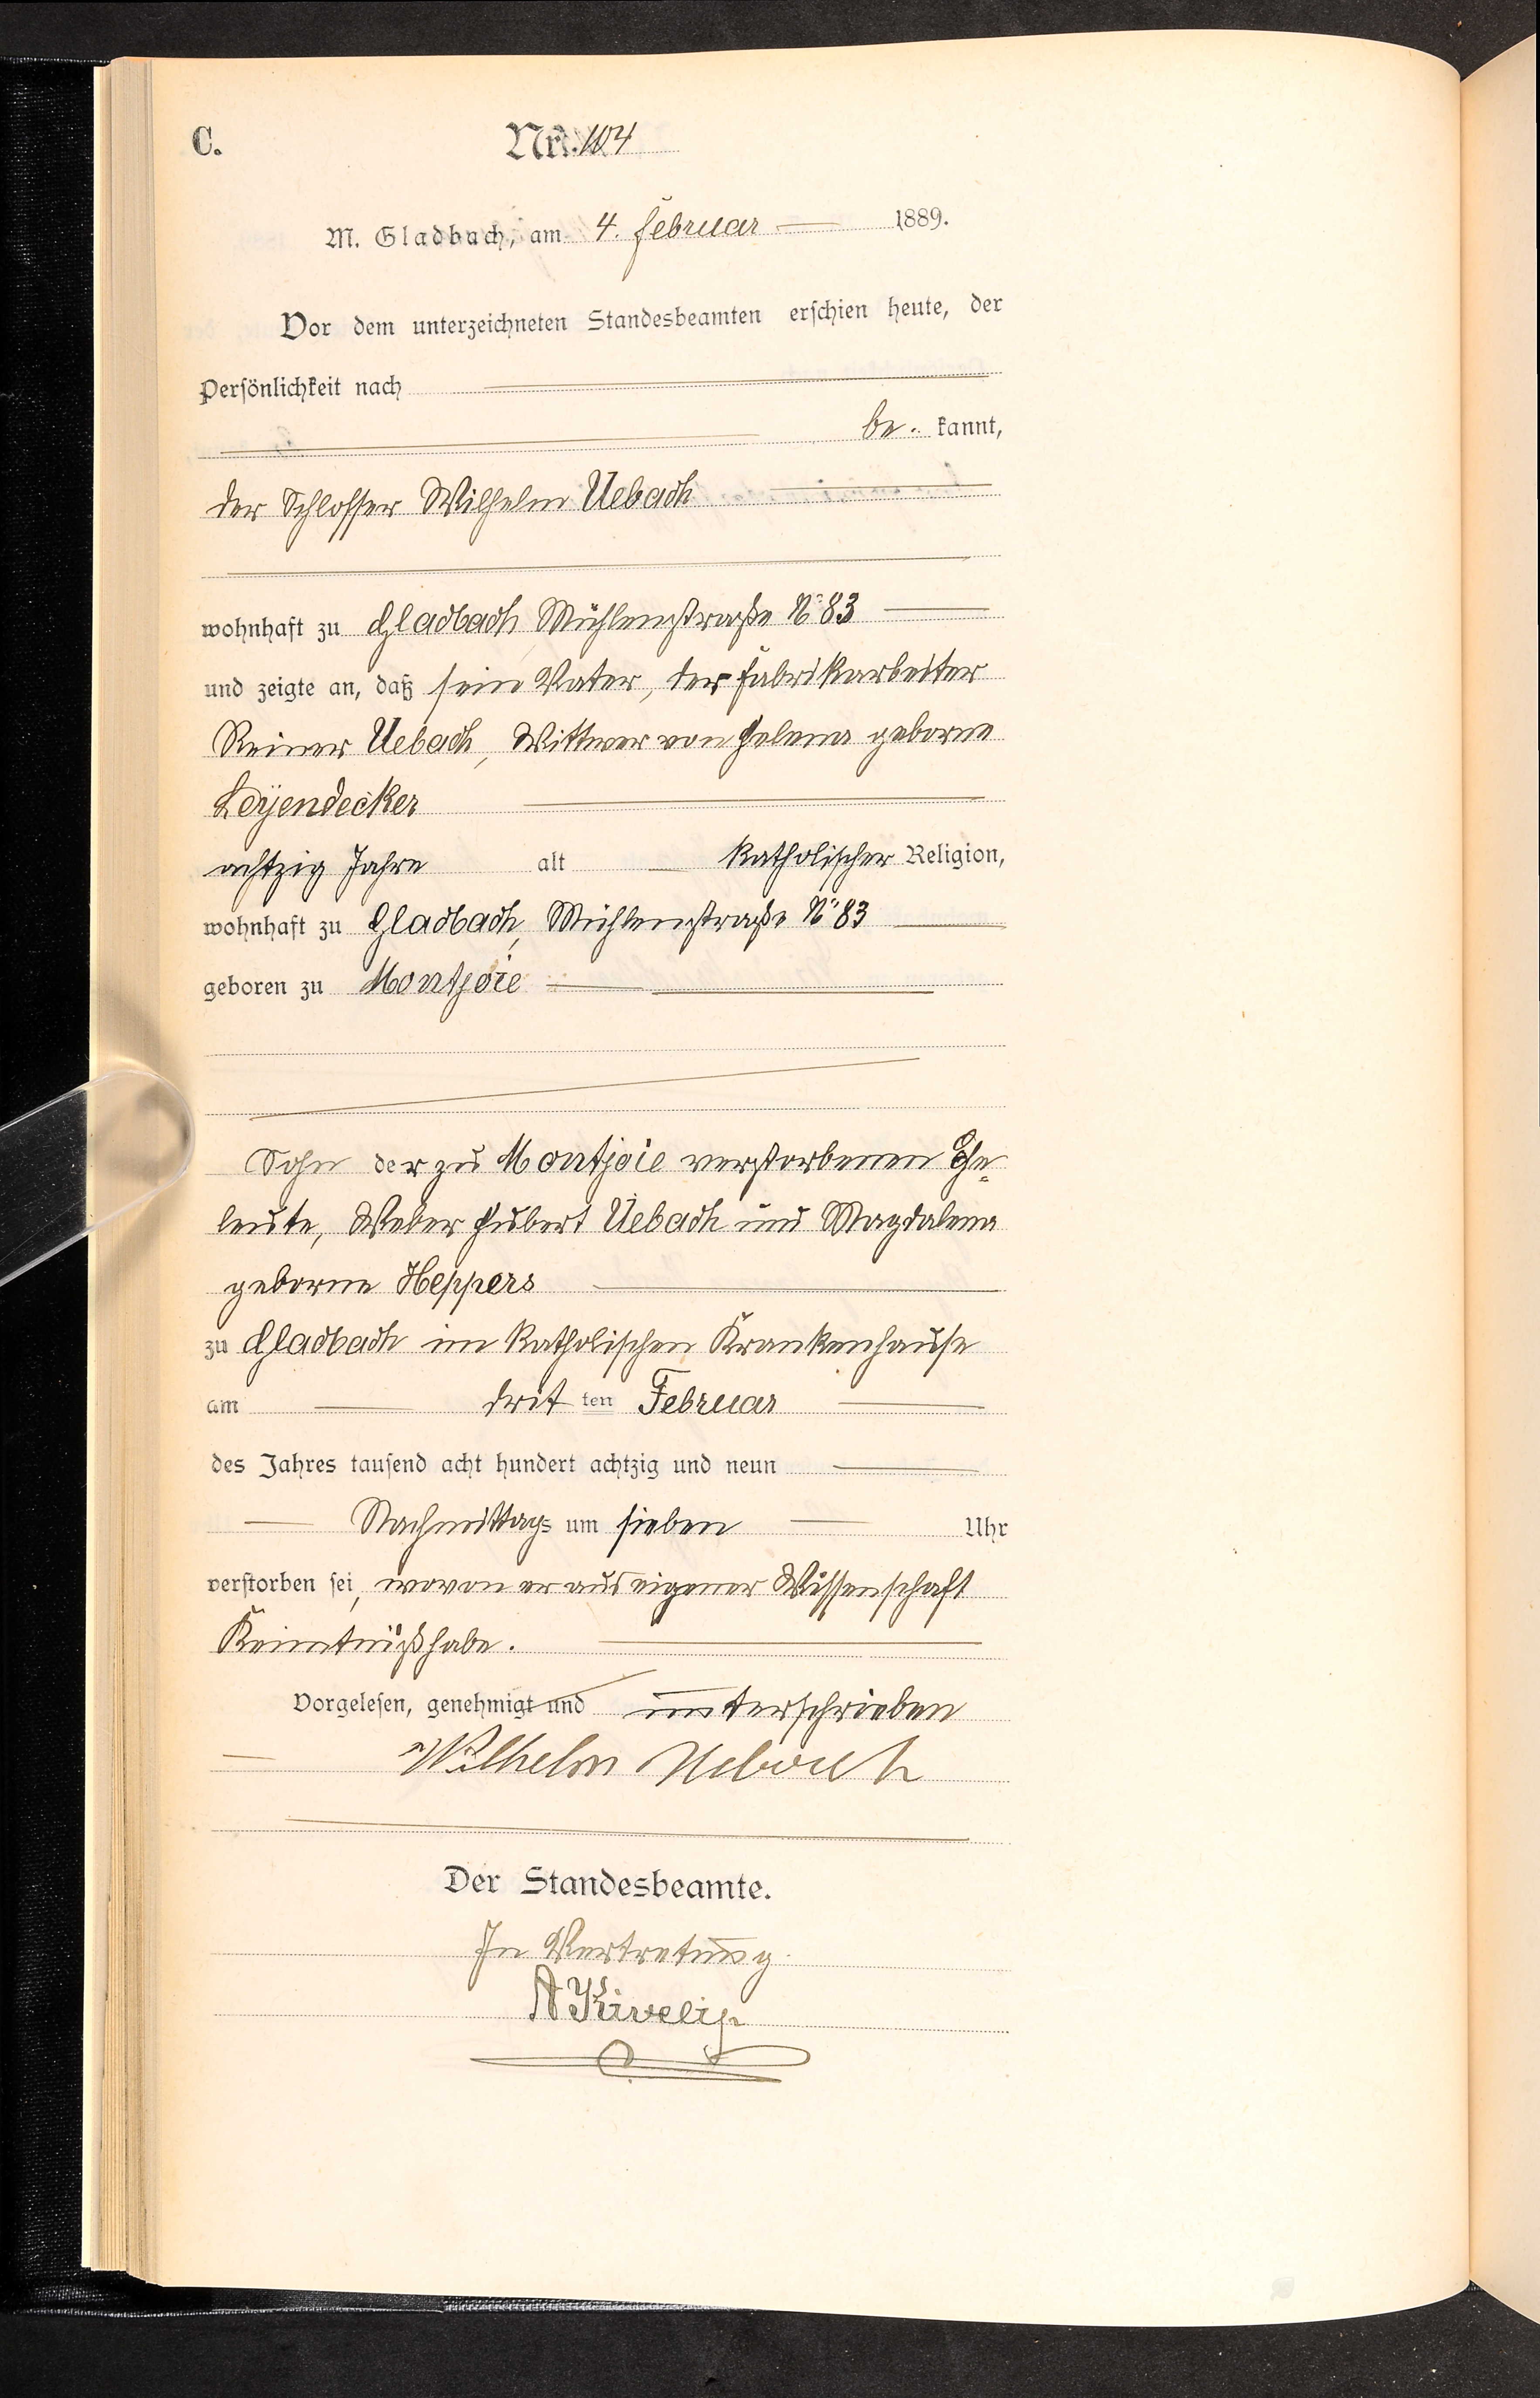 C.
Nr. 104
M. Gladbach, am 4. Februar 1889.
Vor dem unterzeichneten Standesbeamten erschien heute, der
Persönlichkeit nach
be. kannt,
der Schlosser Wilhelm Uebach
wohnhaft zu Gladbach Mühlenstraße No 83
und zeigte an, daß sein Vater, der Fabrikarbeiter
Reiner Uebach, Wittwer von Helena geborne
Leÿendecker
achtzig Jahre alt katholischer Religion,
wohnhaft zu Gladbach, Mühlenstraße No 83
geboren zu Montjoie
Sohn der zu Montjoie verstorbenen Ehe-
leute, Weber Hubert Uebach und Magdalena
geborne Heppers
zu Gladbach im katholischen Krankenhause
am dritten Februar
des Jahres tausend acht hundert achtzig und neun
Nachmittags um sieben Uhr
verstorben sei, wovon er aus eigener Wissenschaft
Kenntniß habe.
Vorgelesen, genehmigt und unterschrieben
Wilhelm Uebach
Der Standesbeamte.
In Vertretung.